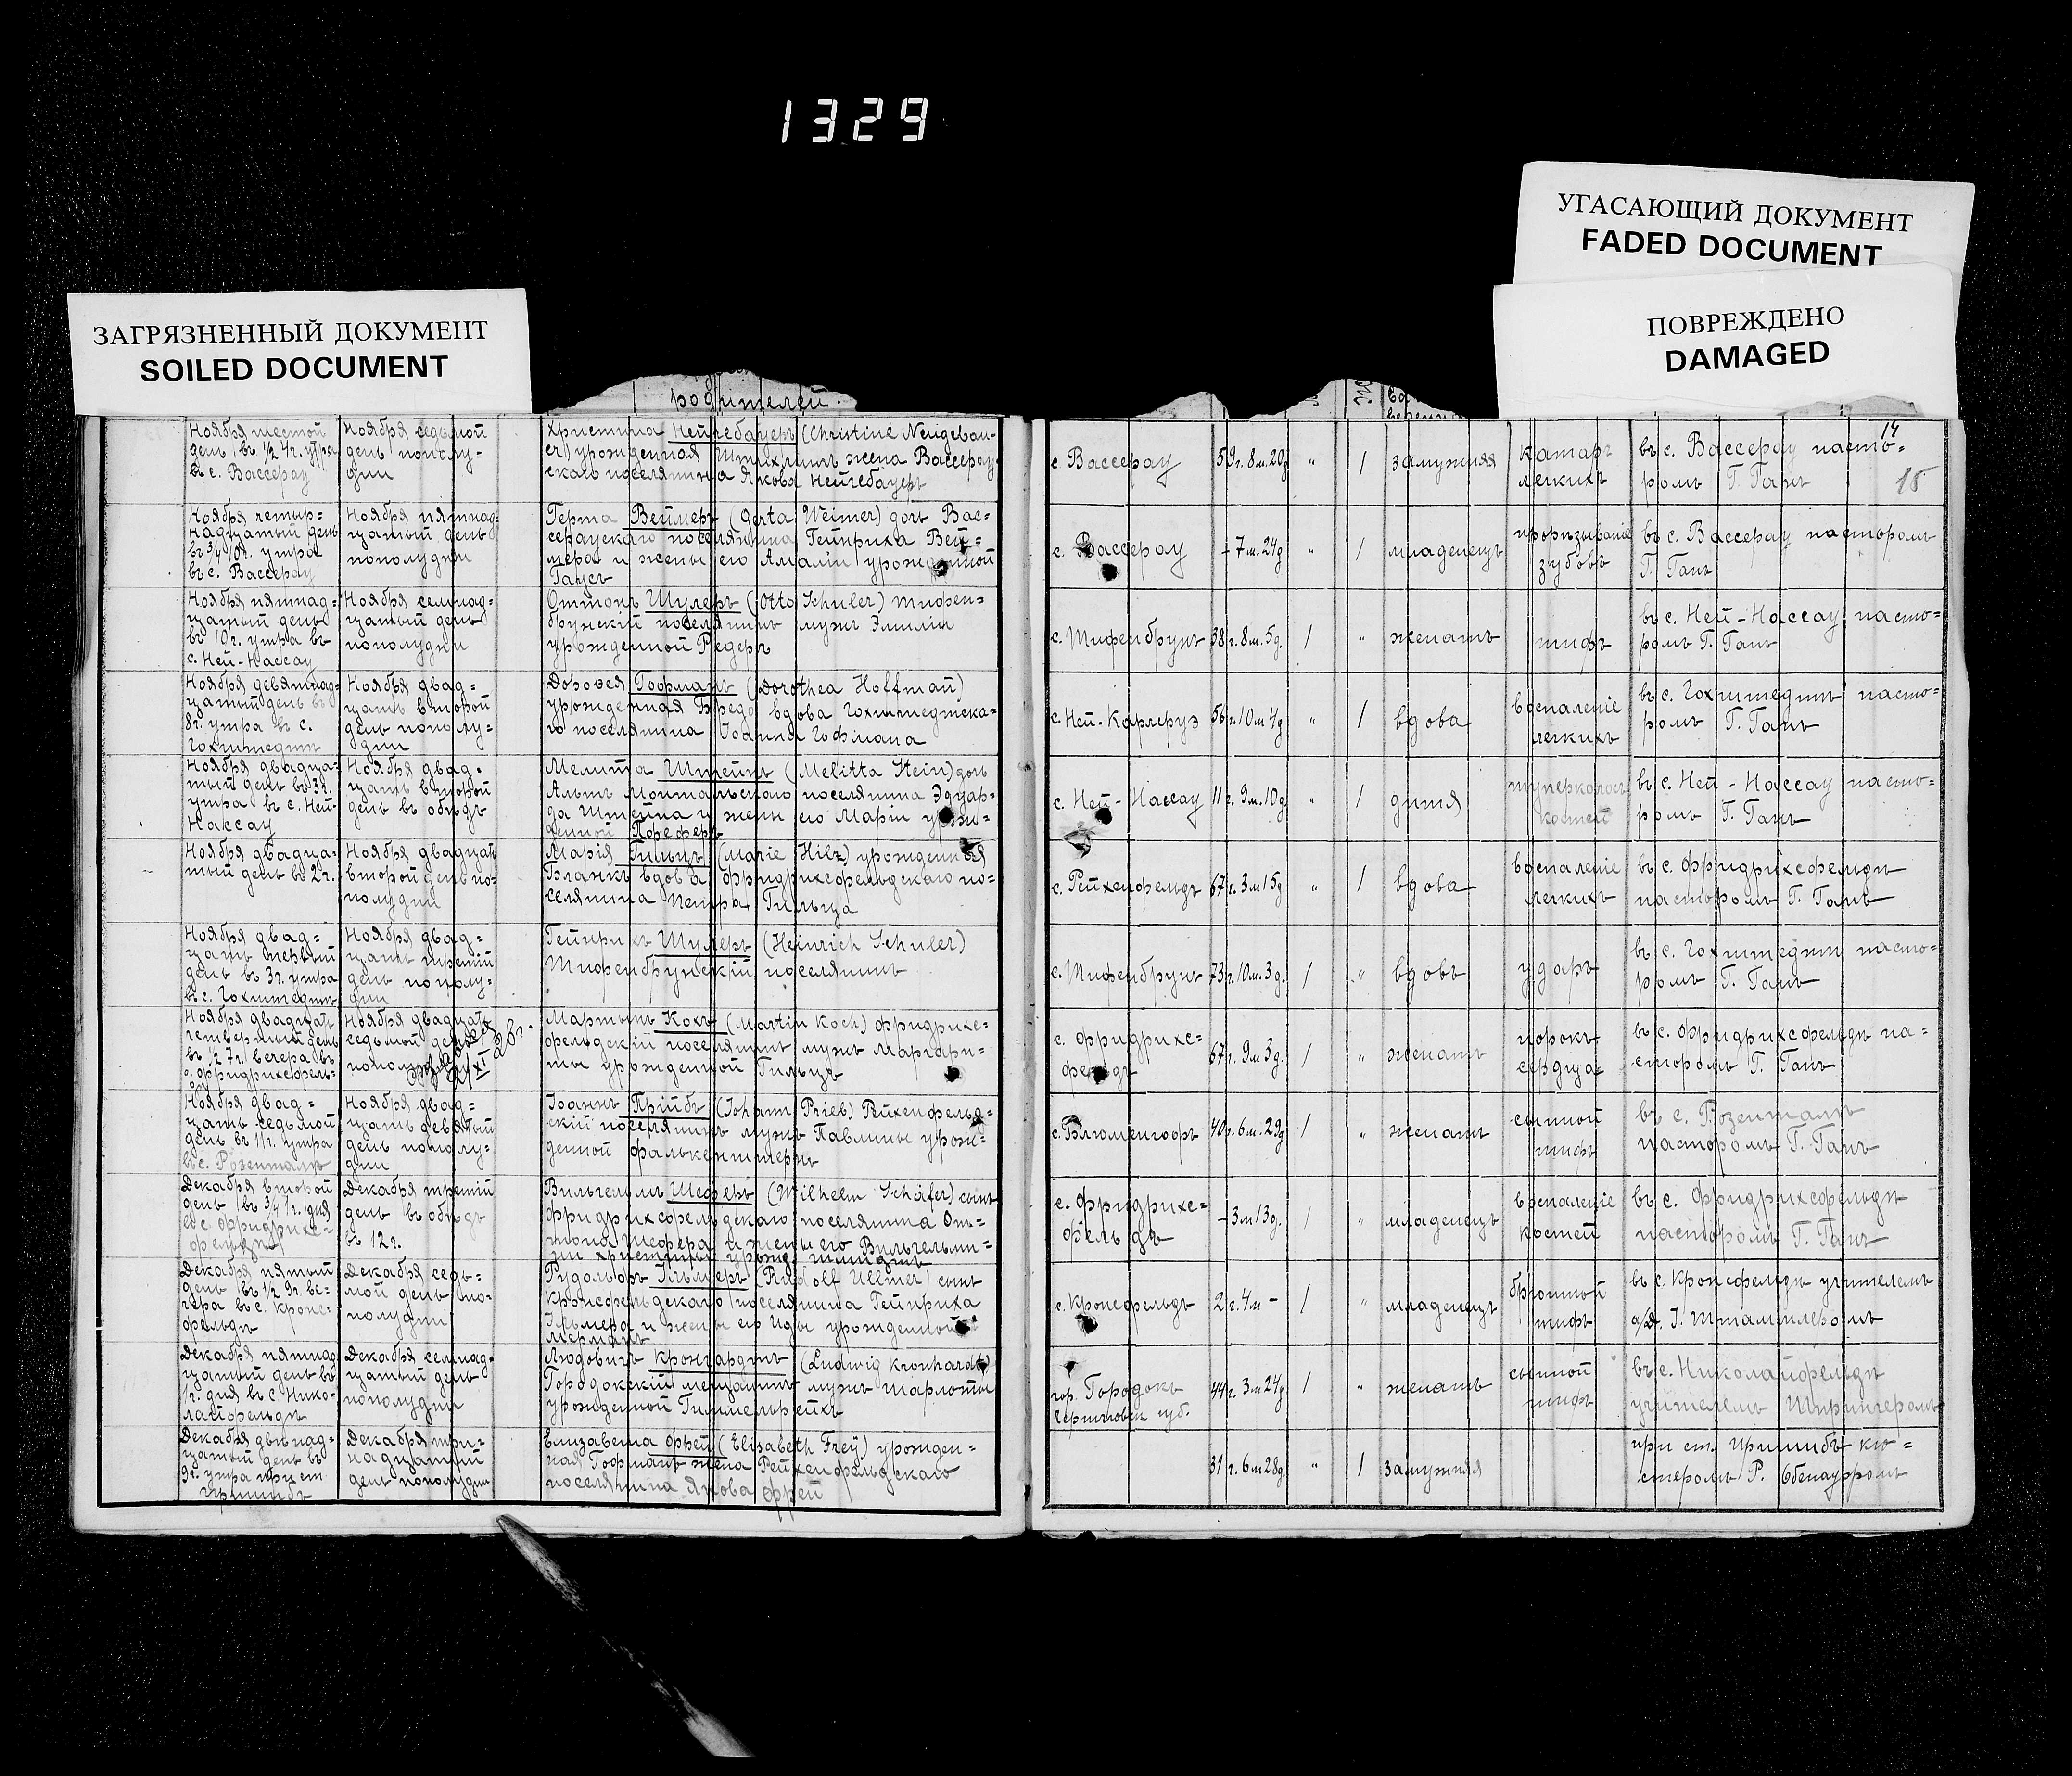 1329
УГАСАЮЩИЙ ДОКУМЕНТ
FADED DOCUMENT
ПОВРЕЖДЕНО
DAMAGED
ЗАГРЯЗНЕННЫЙ ДОКУМЕНТ
SOILED DOCUMENT
родителей.
14
15
Ноября шестой
день въ ½ 4 г. утра
въ с. Вассерау
Ноября седьмой
день пополу-
дни
Христина Нейгебауеръ (Christine Neugebau-
er) урожденная жена Вассерау
скаго поселянина Якова Нейгебауеръ
с. Вассерау
59 г. 8 м. 20 д
"
1
замужняя
катаръ
легкихъ
въ с. Вассерау пасто=
ромъ Г. Ганъ
Ноября четыр=
надцатый день
въ ¾ 10 г. утра
въ с. Вассерау
Ноября пятнад=
цатый день
пополудни
Герта Веймеръ (Gerta Weimer) доч Вас=
серауского поселянина Гейнриха Вей=
мера и жены его Амаліи урожденной
Гаусъ
с. Вассерау
- 7 м. 24 д
"
1
младенецъ
прорѣзываніе
зубовъ
въ с. Вассерау пасторомъ
Г. Ганъ
Ноября пятнад=
цатый день
въ 10 г. утра въ
с. Ней-Нассау
Ноября семнад=
цатый день
пополудни
Оттонъ Шулеръ (Otto Schuler) Тифен=
брунскій поселянинъ мужъ Эмиліи
урожденной Редеръ
с. Тифенбрунъ
38 г. 8 м. 5 д.
1
"
женатъ
тифъ
въ с. Ней-Нассау пасто=
ромъ Г. Ганъ
Ноября девятнад=
цатый день въ
8 г. утра въ с.
Гохштедтъ
Ноября двад=
цать второй
день пополу=
дни
Доровея Гофманъ (Dorothea Hoffman)
урожденная Бредо вдова Гохштедтска=
го поселянина Іоанна Гофмана
с. Ней-Карлсруэ
56 г. 10 м 4 д
"
1
вдова
воспаленіе
легкихъ
въ с. Гохштедтъ пасто=
ромъ Г. Ганъ
Ноября двадца=
тый день въ 3 г.
утра въ с. Ней-
Нассау
Ноября двад=
цать второй
день въ обѣдъ
Мелита Штейнъ (Melitta Stein) доч
Альт Монтальскаго поселянина Эдуар=
да Штейна и жены его Маріи урож=
денной
с. Ней-Нассау
11 г. 9 м. 10 д
"
1
дитя
туперколосъ
костей
въ с. Ней-Нассау пасто=
ромъ Г. Ганъ
Ноября двадца=
тый день въ 2 г.
Ноября двадцать
второй день по=
полудни
Марія Гильцъ (Marie Hilz) урожденная
Бланкъ вдова Фридрихсфельдскаго по=
селянина Петра Гильца
с. Рейхенфельдъ
67 г. 3 м 15 д
"
1
вдова
воспаленіе
легкихъ
въ с. Фридрихсфельдъ
пасторомъ Г. Ганъ
Ноября двад=
цать первый
день въ 3 г. утра
въ с. Гохштедтъ
Ноября двад=
цать третій
день пополу=
дни
Гейнрихъ Шулеръ (Heinrich Schuler)
Тифенбрунскій поселянинъ
с. Тифенбрунъ
73 г. 10 м. 3 д.
1
"
вдовъ
ударъ
въ с. Гохштедтъ пасто=
ромъ Г. Ганъ
Ноября двадцать
четвертый день
въ ½ 7 г. вечера въ
с. Фридрихсфель=
Ноября двадцать
седьмой день
Мартынъ Кохъ (Martin Koch) Фридрихс=
фельдскій поселянинъ мужъ Маргари=
ты урожденной Гильцъ
с. Фридрихс=
фельдъ
67 г. 9 м 3 д.
1
"
женатъ
порокъ
сердца
въ с. Фридрихсфельдъ па=
сторомъ Г. Ганъ
Ноября двад=
цать седьмой
день въ 11 г. утра
въ с. Розенталъ
Ноября двад=
цать девятый
день пополу=
дни
Іоаннъ Прійбъ (Johann Prieb) Рейхенфельд=
скій поселянинъ мужъ Павлины урож=
денной Фалькенштернъ
с. Блюменгофъ
40 г. 6 м. 29 д
1
"
женатъ
сыпной
тифъ
въ с. Розенталъ
пасторомъ Г. Ганъ
Декабря второй
день въ ¾ 1 г. дня
въ с. Фридрихс=
фельдъ
Декабря третій
день въ обѣдъ
въ 12 г.
Вильгельмъ Шеферъ (Wilhelm Schäfer) сынъ
Фридрихсфельдскаго поселянина От=
тона Шефера и жены его Вильгельми=
с. Фридрихс=
фельдъ
- 3 м 13 д.
1
"
младенецъ
воспаленіе
костей
въ с. Фридрихсфельдъ
пасторомъ Г. Ганъ
Декабря пятый
день въ ½ 9 г. ве=
чера въ с. Кронс=
фельдъ
Декабря седь=
мой день по=
полудни
Рудольфъ Ильмеръ (Rudolf Ullmer) сынъ
Кронсфельдскаго поселянина Гейнриха
Ильмера и жены его Иды урожденной
с. Кронсфельдъ
2 г. 4 м -
1
"
младенецъ
брюшной
тифъ
въ с. Кронсфельдъ учителемъ
І. Штаммлеромъ
Декабря пятнад
цатый день въ
1 г. дня въ с. Нико-
лайфельдъ
Декабря семнад=
цатый день
пополудни
Людовигъ Кронгардтъ (Ludwig Kronhardt)
Городокскій мещанинъ мужъ Шарлоты
урожденной Гиммельрейхъ
гор. Городокъ
Черниговск. губ.
44 г. 3 м 24 д
1
"
женатъ
сыпной
тифъ
въ с. Николайфельдъ
учителемъ Шпрингеромъ
Декабря двѣнад=
цатый день въ
9 г. утра при ст
Пришибъ
Декабря три=
надцатый
день пополудни
Елизавета Фрей (Elisabeth Freÿ) урожден=
ная Гофманъ жена Рейхенфельдскаго
поселянина Якова Фрей
31 г. 6 м 28 д
"
1
замужняя
при ст. Пришибъ кю=
стеромъ Р.